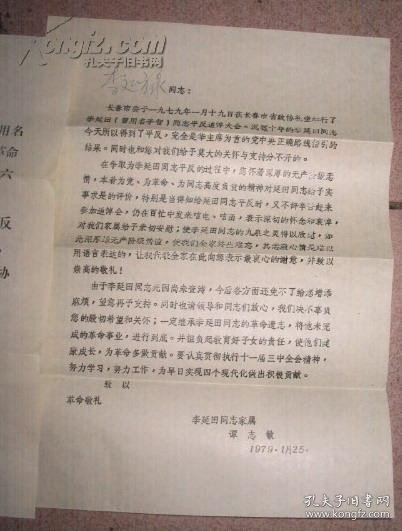 孔夫子旧书网
同志：
长春市委于一九七九年一月十九日在长春市省政协礼堂举行了
李延田（曾用名子智）同志平反追悼大会。沉冤十年的李延田同志
今天所以得到了平反，完全是华主席为首的党中央正确路线指引的
结果。同时也和您对我们给予莫大的关怀与支持分不开的。
在争取为李延田同志平反的过程中，您怀着深厚的无产阶级感
情，本着为党、为革命、为同志高度负责的精神对延田同志给予实
事求是的评价，特别是当得知给延田同志平反时，又不辞辛苦赶来
参加追悼会，仍在百忙中发来唁电、唁函，表示深切的怀念和哀悼，
对我们家属给予亲切安慰；使李延田同志的九泉之灵得以欣慰，如
此深厚无产阶级情谊，使我们全家终生难忘，其感激心情是难以
用语言表达的，让我代表全家在此向您表示最衷心的谢意，并致以
崇高的敬礼！
由于李延田同志死因尚未查清，今后各方面还免不了给您增添
麻烦，望您再予支持。同时也请领导和同志们放心，我们决不辜负
您的殷切希望和关怀；一定继承李延田同志的革命遗志，将他未完
成的革命事业，进行到底。并担负起教育好子女的责任，使他们健
康成长，为革命多做贡献。要认真贯彻执行十一届三中全会精神，
努力学习，努力工作，为早日实现四个现代化做出积极贡献。
致以
革命敬礼
李延田同志家属
谭志敏
1979·1月25·
用名
革命
六
反
协
孔夫子旧书网
www.kongfz.com